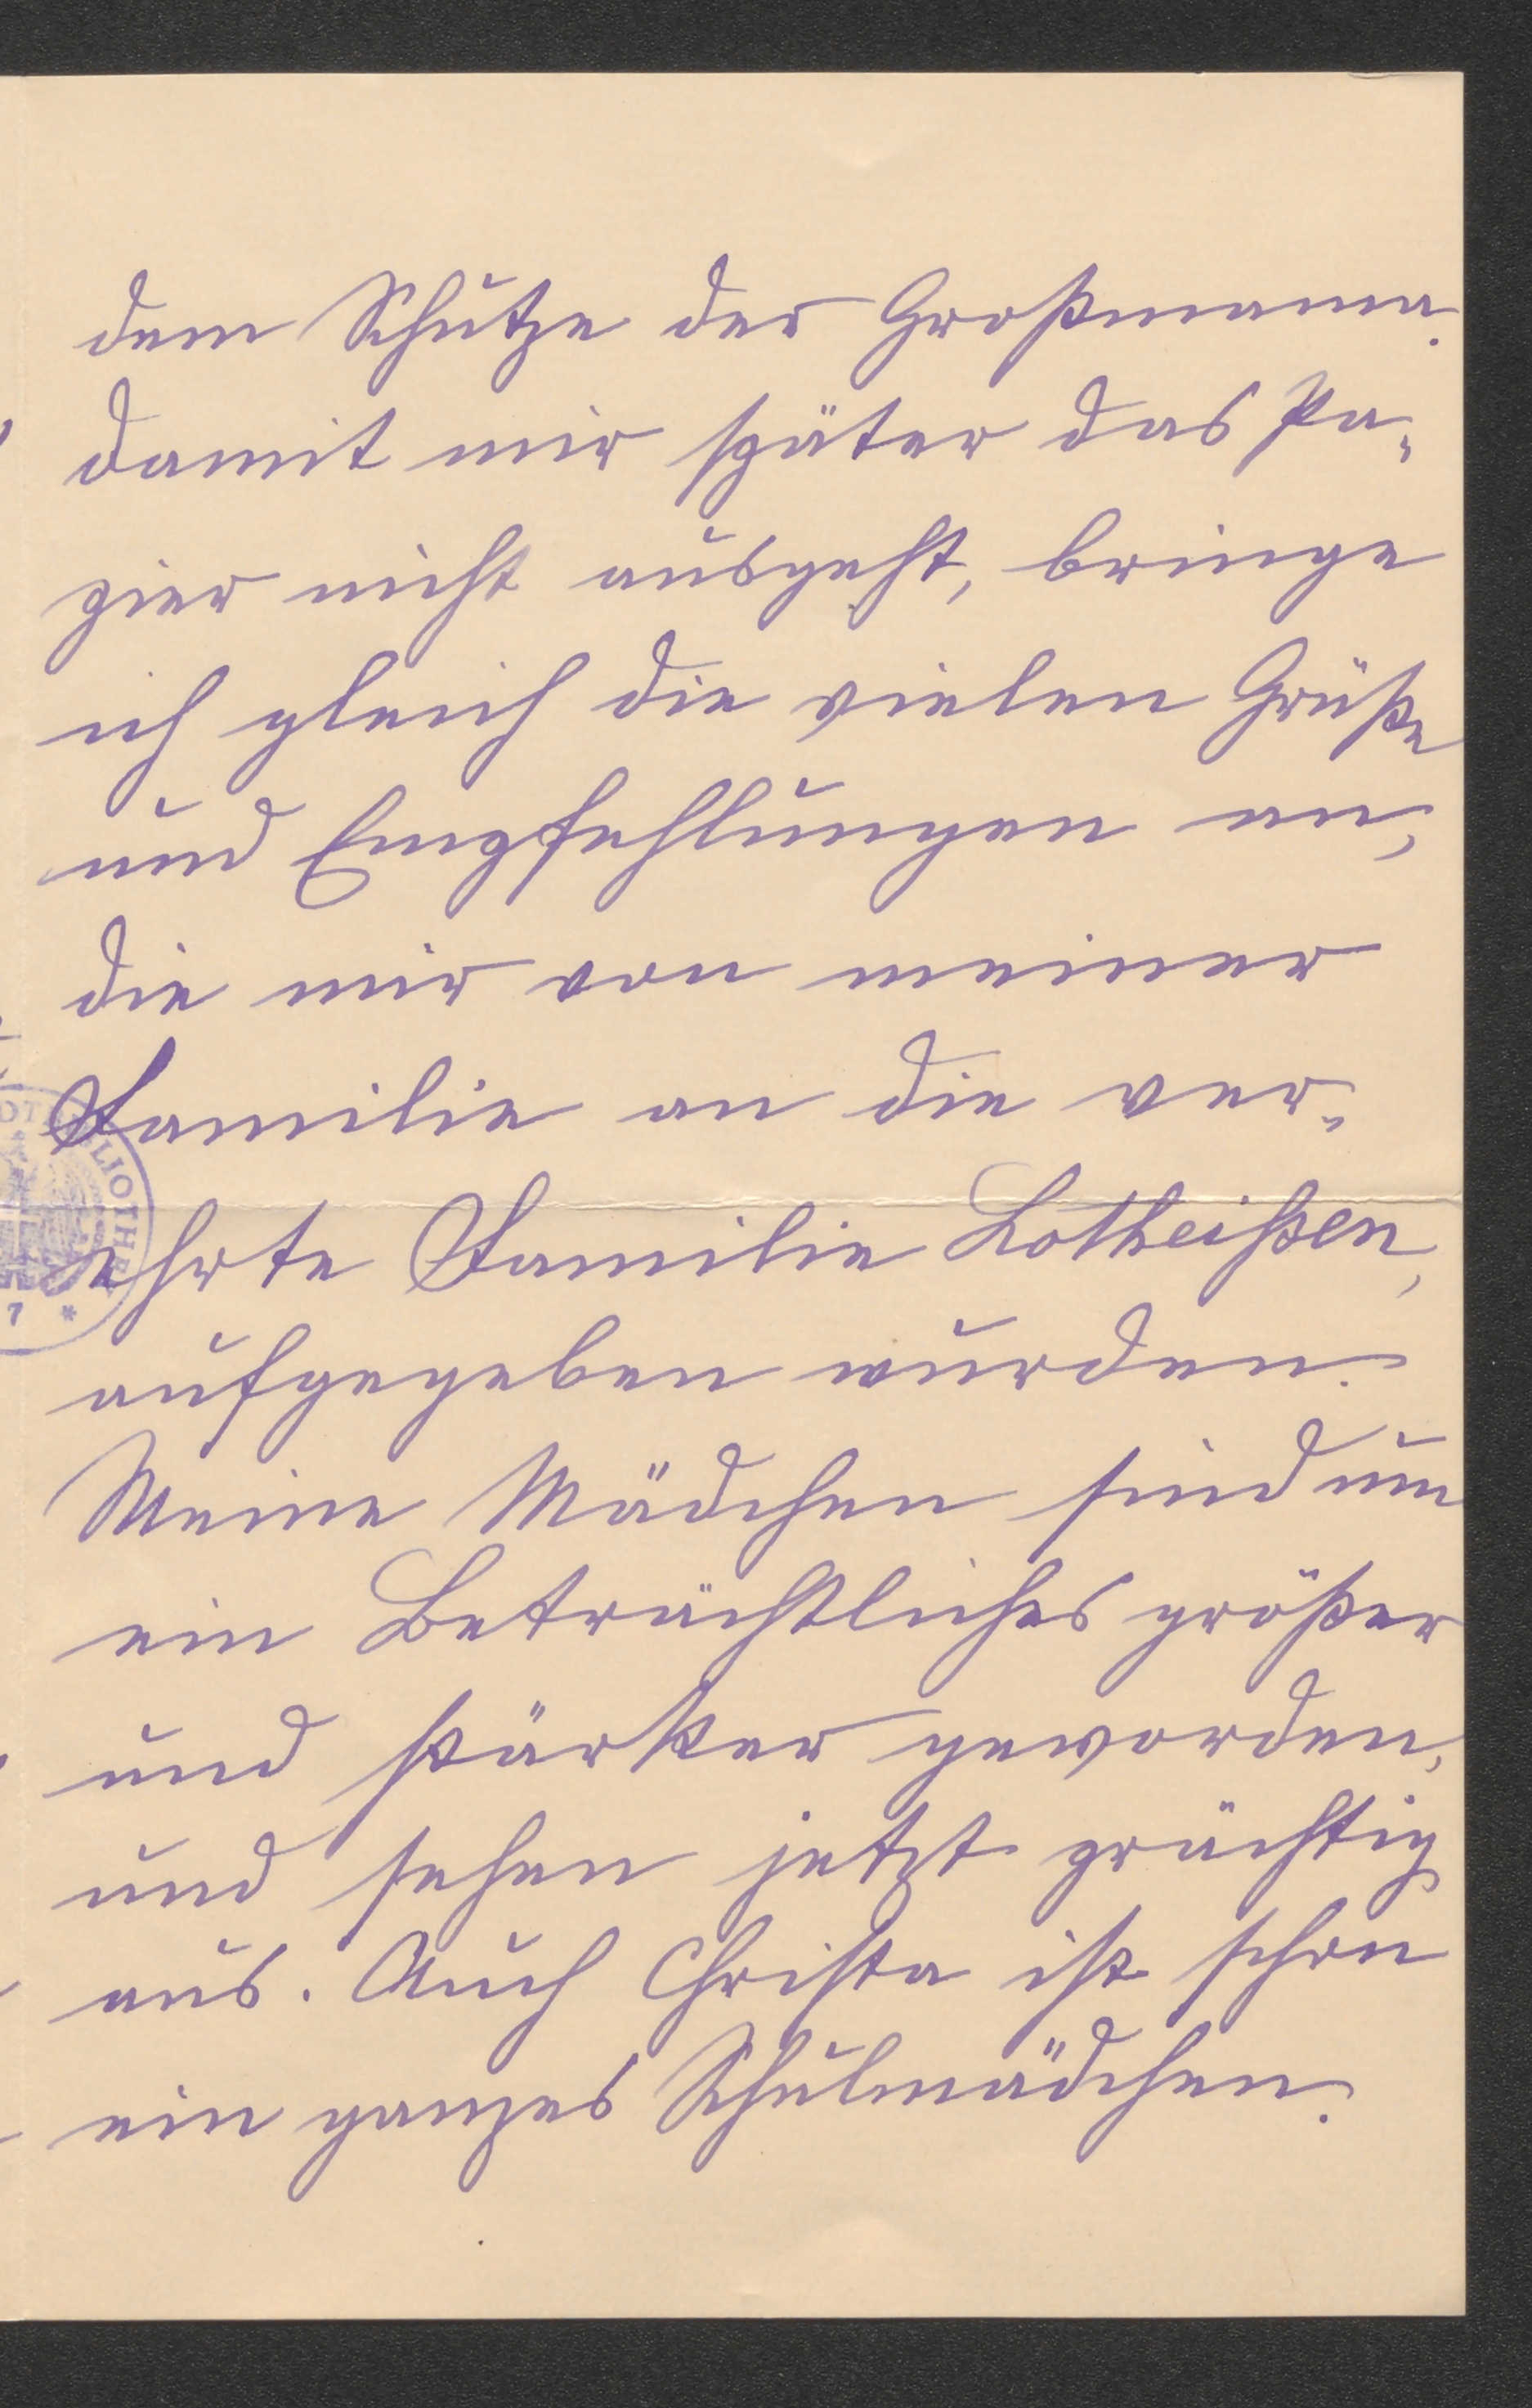 dem Schutze der Großmama.
damit mir später das Pa-
pier nicht ausgeht, bringe
ich gleich die vielen Grüße
und Empfehlungen an,
die mir von meiner
Familie an die ver-
ehrte Familie Lotheißen,
aufgegeben wurden.
Meine Mädchen sind um
ein Beträchtliches größer
und stärker geworden,
und sehen jetzt prächtig
aus. Auch Christa ist schon
ein ganzes Schulmädchen.
LIOTHE
7 *